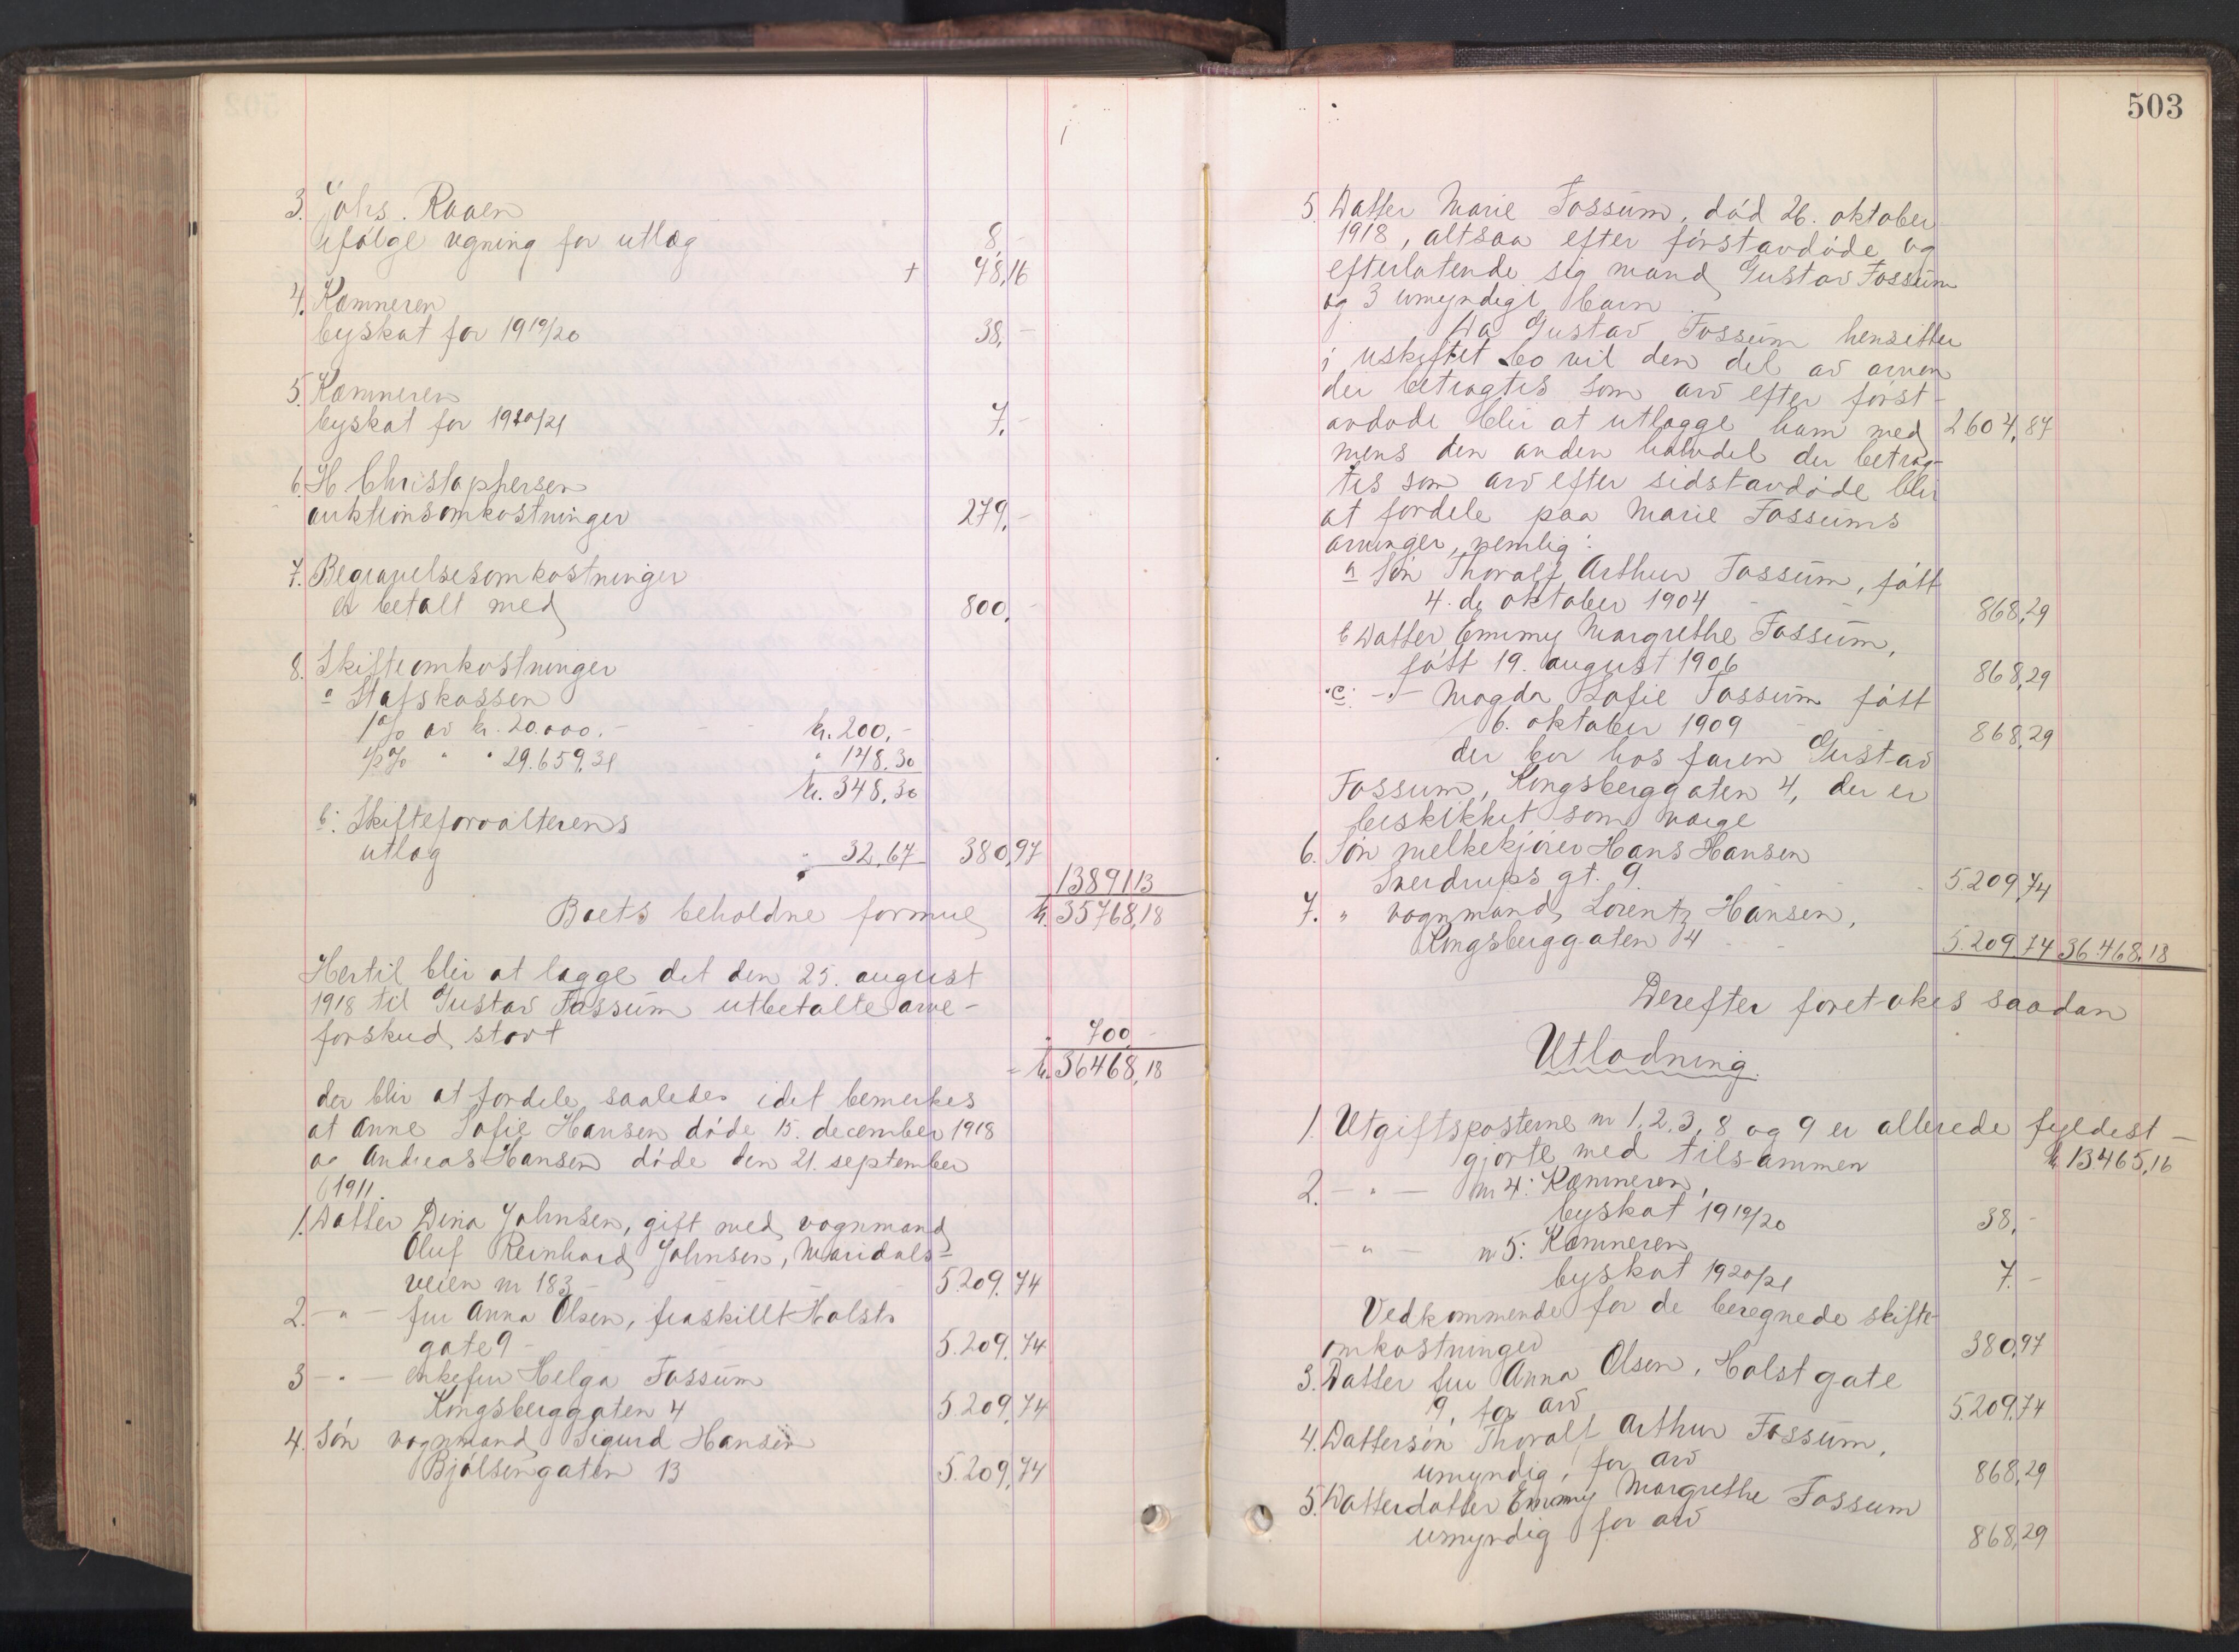 3. Johs. Raaen
ifølge regning for utlæg 8,-
+ 48,16
4. Kæmneren
byskat for 1919/20 38,-
5. Kæmneren
byskat for 1920/21 7,-
6. H Christophersen
auktionsomkostninger 279,-
7. Begravelsesomkostninger
er betalt med 800,-
8. Skifteomkostninger
a Statskassen
1% av kr. 20.000.- - - kr. 200,-
1/2% " " 29.659,31 " 148,30
kr. 348,30
b: Skifteforvalterens
utlæg " 32,67 380,97
13891 13
Boets beholdne formue kr. 35768,18
Hertil blir at lægge det den 25. august
1918 til Gustav Fossum utbetalte arve-
forskud stort " 700,-
= kr. 36468,18
der blir at fordele saaledes idet bemerkes
at Anne Sofie Hansen døde 15. december 1918
og Andreas Hansen døde den 21. september
1911.
1. Datter Dina Johnsen, gift med vognmand
Oluf Reinhard Johnsen, Maridals-
veien nr 183 - 5.209,74
2. - " - fru Anna Olsen, fraskillt Holsts
gate 9 - 5.209,74
3 - " - enkefru Helga Fossum
Kongsberggaten 4 5.209,74
4. Søn vognmand Sigurd Hansen
Bjølsengaten 13 5.209,74
503
5. Datter Marie Fossum, død 26. oktober
1918, altsaa efter førstavdøde og
efterlatende sig mand Gustav Fossum
og 3 umyndige barn.
Da Gustav Fossum hensitter
i uskiftet bo vil den del av arven
der betragtes som arv efter først-
avdøde blir at utlægge ham med 2604,87
mens den anden halvdel der betrag-
tes som arv efter sidstavdøde blir
at fordele paa Marie Fossums
arvinger, nemlig:
a Søn Thoralf Arthur Fossum, født
4. de oktober 1904 - - 868,29
b Datter Emmy Margrethe Fossum,
født 19. august 1906 868,29
c: - " - Magda Sofie Fossum født
6. oktober 1909 - - 868,29
der bor hos faren Gustav
Fossum, Kongsberggaten 4, der er
beskikket som værge
6. Søn melkekjører Hans Hansen
Sverdrups gt. 9. - 5.209,74
7. " vognmand Lorentz Hansen,
Kongsberggaten 4 - - 5.209,74 36.468,18
Derefter foretakes saadan
Utlodning.
1. Utgiftsposterne nr 1, 2, 3, 8 og 9 er allerede fyldest-
gjorte med tilsammen kr. 13465,16
2. - " - nr 4: Kæmneren,
byskat 1919/20 38,-
- " - nr 5: Kæmneren
byskat 1920/21 7.-
Vedkommende for de beregnede skifte-
omkostninger 380,97
3. Datter fru Anna Olsen, Holst gate
9, for arv 5.209,74
4. Dattersøn Thoralf Arthur Fossum,
umyndig, for arv 868,29
5. Datterdatter Emmy Margrethe Fossum
umyndig for arv 868,29